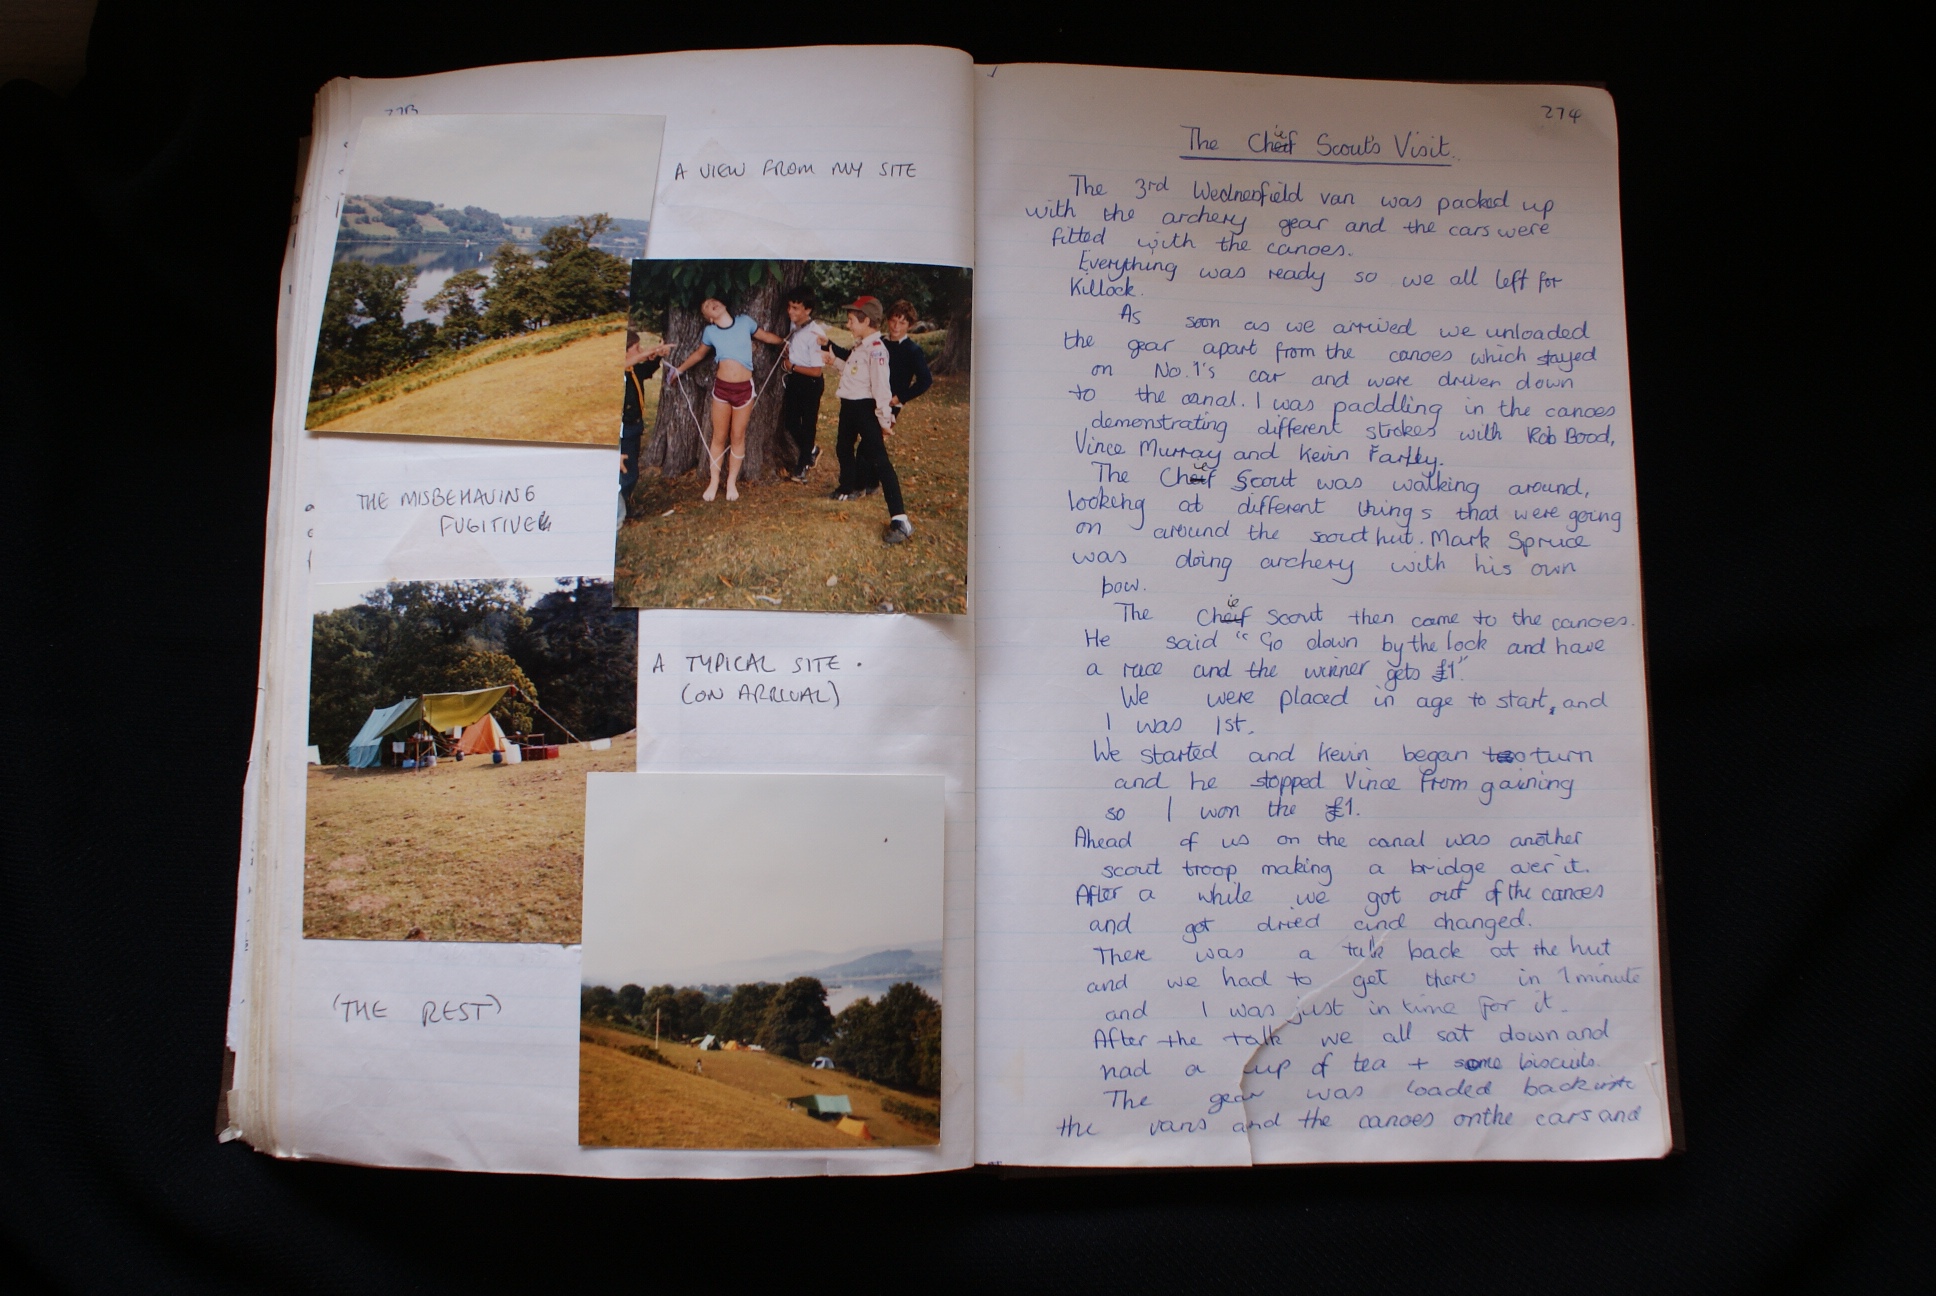 273
A VIEW FROM MY SITE
THE MISBEHAVING
FUGITIVE
A TYPICAL SITE.
(ON ARRIVAL)
(THE REST)
274
The Chief Scout's Visit.
The 3rd Wednesfield van was packed up
with the archery gear and the cars were
fitted with the canoes.
Everything was ready so we all left for
Killock.
As soon as we arrived we unloaded
the gear apart from the canoes which stayed
on No.1's car and were driven down
to the canal. I was paddling in the canoes
demonstrating different strokes with Rob Bood,
Vince Murray and Kevin Farley.
The Chief Scout was walking around,
looking at different things that were going
on around the scout hut. Mark Spruce
was doing archery with his own
bow.
The Chief Scout then came to the canoes.
He said "Go down by the lock and have
a race and the winner gets £1"
We were placed in age to start, and
I was 1st.
We started and Kevin began to turn
and he stopped Vince from gaining
so I won the £1.
Ahead of us on the canal was another
scout troop making a bridge over it.
After a while we got out of the canoes
and got dried and changed.
There was a talk back at the hut
and we had to get there in 1 minute
and I was just in time for it.
After the talk we all sat down and
had a cup of tea + some biscuits.
The gear was loaded back into
the vans and the canoes on the cars and